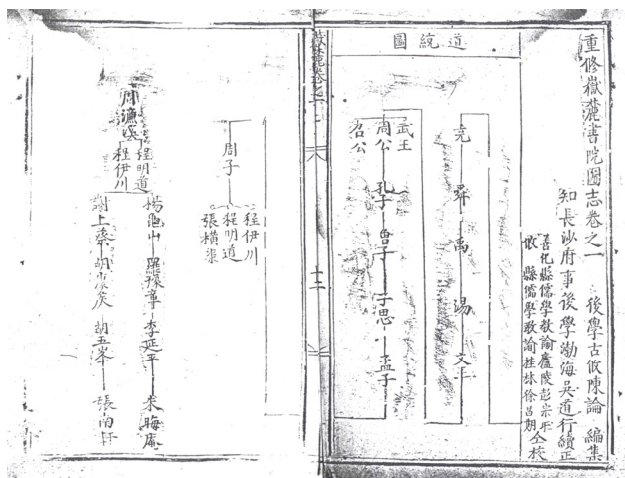 重修嶽麓書院圖志卷之一
後學古攸陳論編集
知長沙府事後學渤海吳道行續正
善化縣儒學教諭廬陵彭宗旺
攸縣儒學教諭桂林徐昌期仝校
道統圖
堯 舜 禹 湯 文王
武王
周公 孔子 曾子 子思 孟子
召公
十二
周子
程伊川
程明道
張橫渠
周濂溪
程明道
程伊川
楊龜山 羅豫章 李延平 朱晦庵
謝上蔡 胡 胡五峯 張南軒